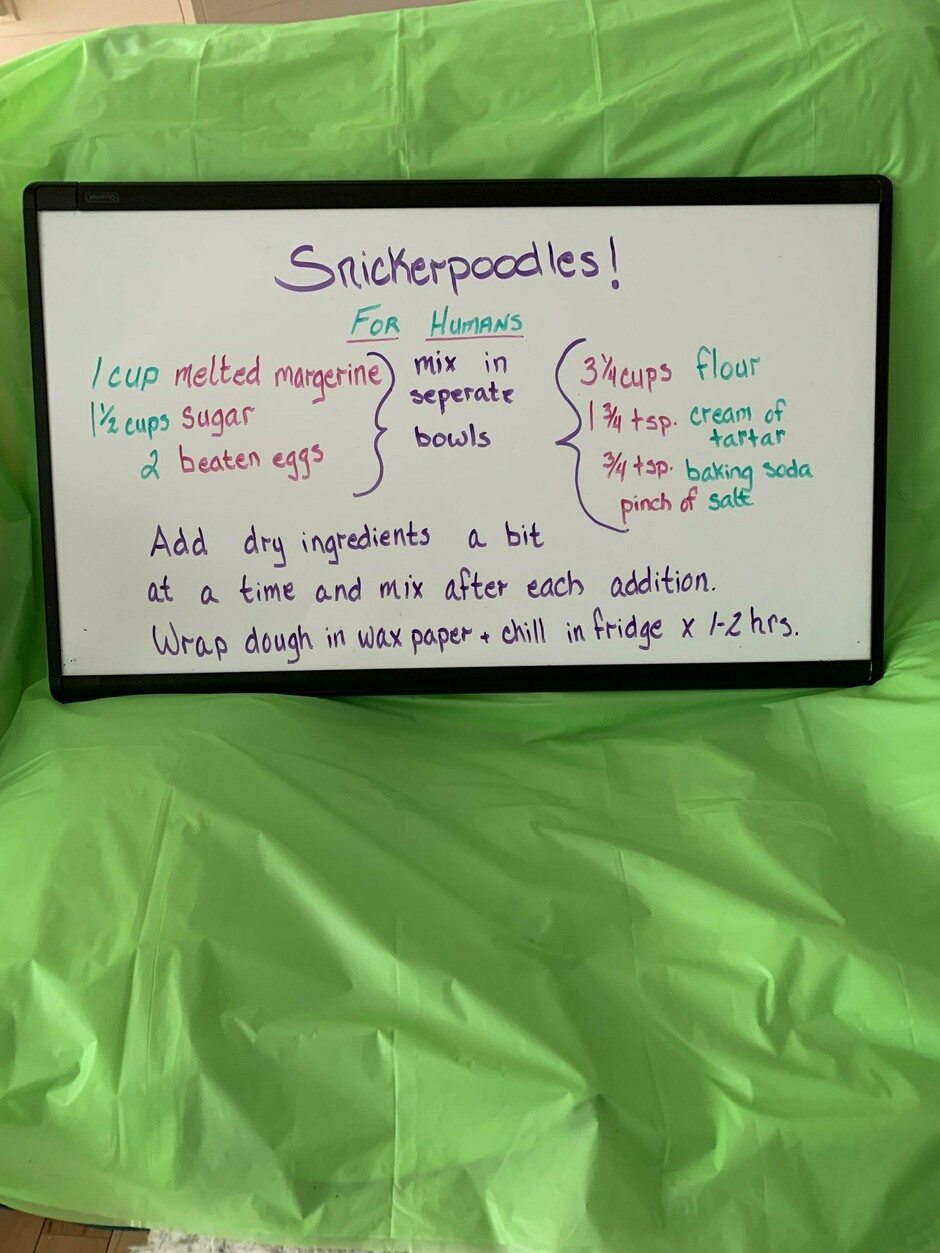 Snickerpoodles!
For Humans
1 cup melted margerine
1 1/2 cups sugar
2 beaten eggs
mix in
seperate
bowls
3 1/4 cups flour
1 3/4 tsp. cream of
tartar
3/4 tsp. baking soda
pinch of salt
Add dry ingredients a bit
at a time and mix after each addition.
Wrap dough in wax paper + chill in fridge x 1-2 hrs.